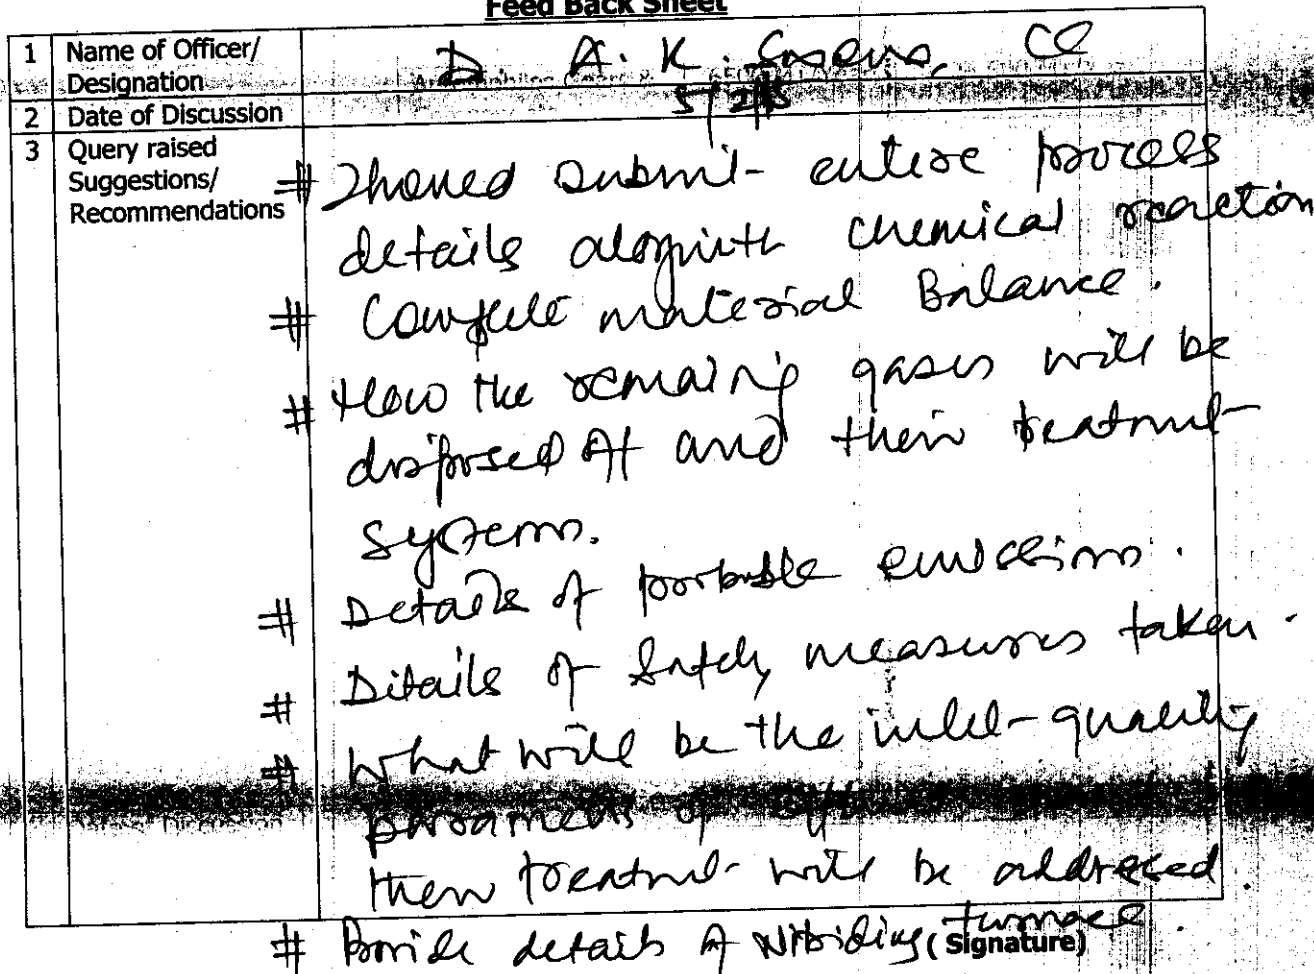 Feed Back Sheet
1 Name of Officer/ Designation D. A. K. CE
2 Date of Discussion 5/2/
3 Query raised Suggestions/ Recommendations
# Should submit entire process
details alongwith chemical reaction
# Complete material Balance.
# How the remaining gases will be
disposed of and their treatment
systems.
# Details of probable emissions.
# Details of Safety measures taken.
# What will be the inlet quality
parameters of
then treatment will be addressed.
# Provide details of Nitriding furnace.
(Signature)